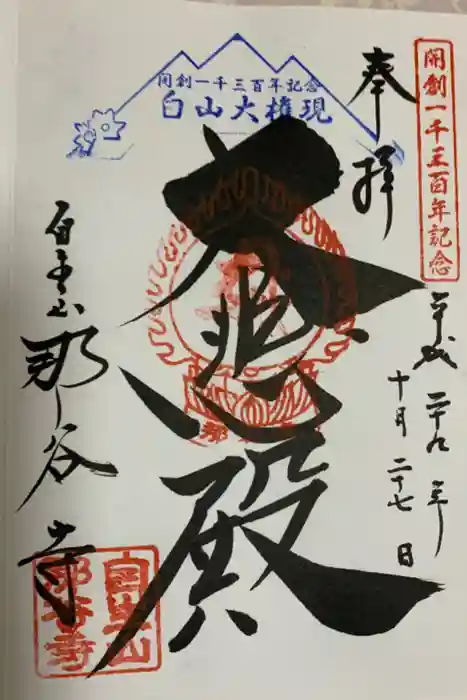 開創一千三百年記念
奉拝
平成二十九年
十月二十七日
開創一千三百年記念
白山大権現
大悲殿
自生山
那谷寺
自生山
那谷寺
那